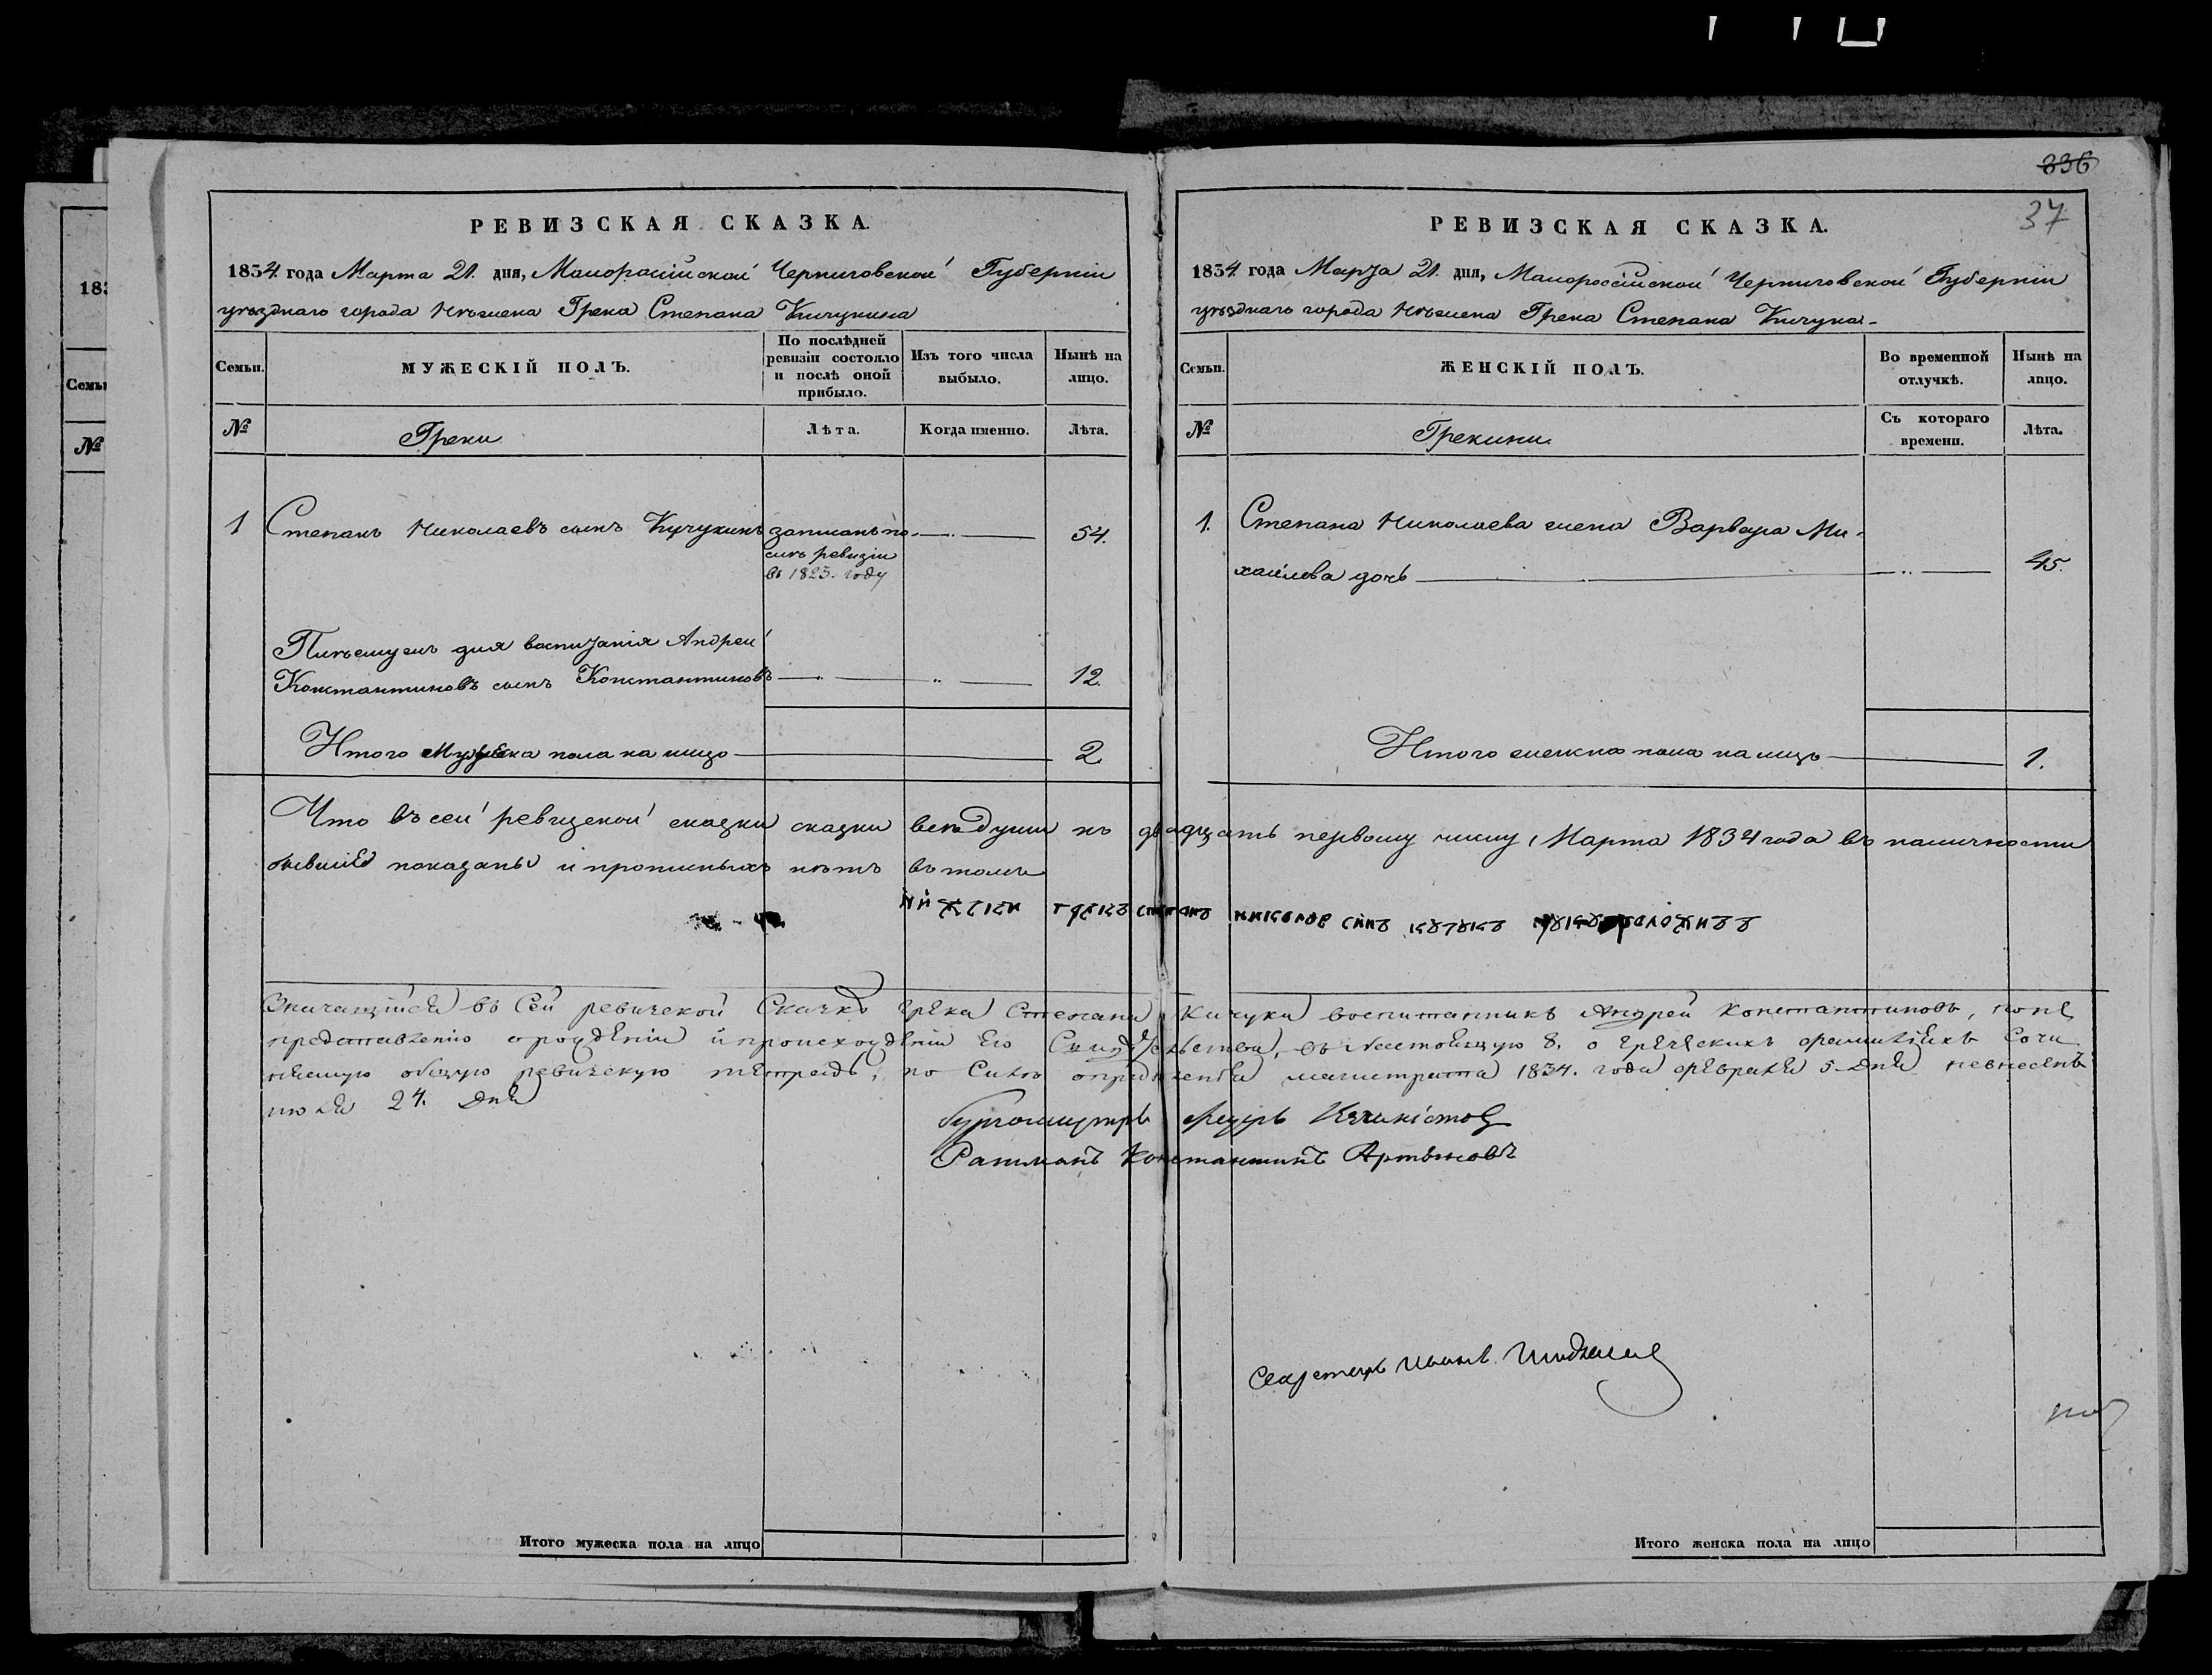 336
37
РЕВИЗСКАЯ СКАЗКА.
1834 года Марта 21. дня, Малоросійской Черниговской Губерніи
уѣзднаго города Нѣжена Грека Степана Кичукина
Семьи.
МУЖЕСКІЙ ПОЛЪ.
По послѣдней ревизіи состояло и послѣ оной прибыло.
Изъ того числа выбыло.
Нынѣ на лицо.
№
Греки
Лѣта.
Когда именно.
Лѣта.
1 Степанъ Николаевъ сынъ Кучукинъ записанъ по- 54.
ревизіи
въ 1823. году
для воспитанія Андрей
Константиновъ сынъ Константиновъ 12.
Итого Мужеска пола на лицо 2
РЕВИЗСКАЯ СКАЗКА.
1834 года Марта 21. дня, Малороссійской Черниговской Губерніи
уѣзднаго города Нѣжена Грека Степана Кичука
Семьи.
ЖЕНСКІЙ ПОЛЪ.
Во временной отлучкѣ.
Нынѣ на лицо.
№
Грекини
Съ котораго времени.
Лѣта.
1. Степана Николаева жена Варвара Ми-
хайлова дочь 45.
Итого женска пола на лицо 1.
Что въ сей ревизской сказки сказки всѣ души по двадцать первому числу Марта 1834 года въ наличности
бывшіе показаны и прописныхъ нѣтъ въ томъ
грекъ степанъ николов синъ кучукъ
Значащійся въ Сей ревизской Сказке грека Степана Кичуки воспитанникъ Андрей Константиновъ, по не
представленію о рожденіи и происхожденіи его Свидѣтельства, въ Настоящую 8. о греческихъ фамиліяхъ Сочи
няемую общую ревизскую тетрадь, по Силѣ определенія магистрата 1834. года февраля 5. Дня невнесенъ
июля 24. Дня
Бургомистръ
Ратманъ Константинъ Артыновъ
Секретарь
Итого мужеска пола на лицо
Итого женска пола на лицо